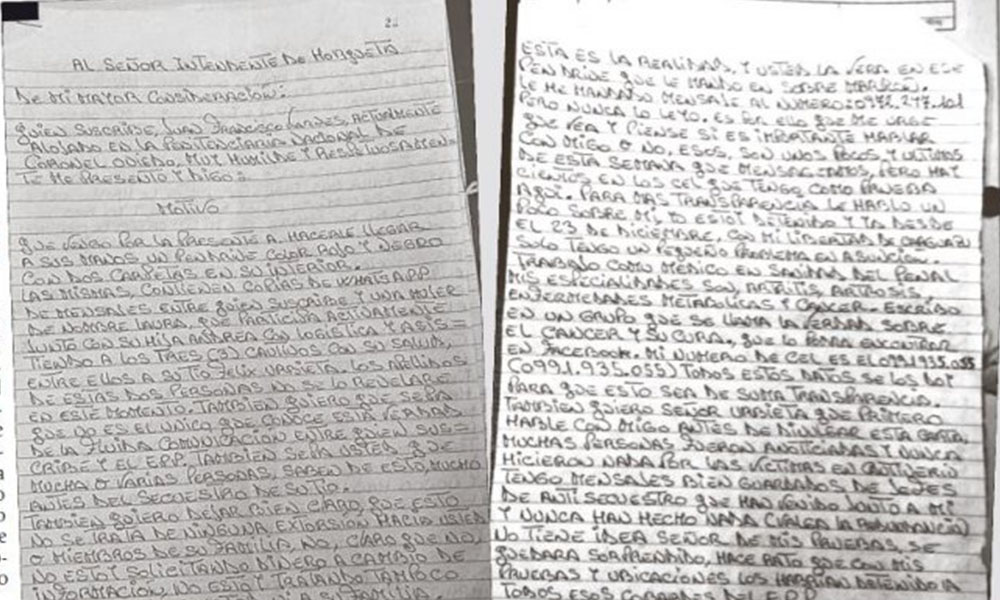 AL SEÑOR INTENDENTE DE HORQUETA
DE MI MAYOR CONSIDERACION:
QUIEN SUSCRIBE, JUAN FRANCISCO, ACTUALMENTE
ALOJADO EN LA PENITENCIARIA NACIONAL DE
CORONEL OVIEDO, MUY HUMILDE Y RESPETUOSAMEN-
TE ME PRESENTO Y DIGO:
MOTIVO
QUE VENGO POR LA PRESENTE A HACERLE LLEGAR
A SUS MANOS UN PENDRIVE COLOR ROJO Y NEGRO
CON DOS CARPETAS EN SU INTERIOR.
LAS MISMAS, CONTIENEN COPIAS DE WHATSAPP
DE MENSAJES ENTRE QUIEN SUSCRIBE Y UNA MUJER
DE NOMBRE LAURA, QUE PARTICIPA ACTIVAMENTE
JUNTO CON SU HIJA ANDREA CON LOGISTICA Y ASIS=
TIENDO A LOS TRES (3) CAUTIVOS CON SU SALUD,
ENTRE ELLOS A SU TIO FELIX URBIETA. LOS APELLIDOS
DE ESTAS DOS PERSONAS NO SE LO REVELARE
EN ESTE MOMENTO. TAMBIEN QUIERO QUE SEPA
QUE NO ES EL UNICO QUE CONOCE ESTA VERDAD
DE LA FLUIDA COMUNICACION ENTRE QUIEN SUS=
CRIBE Y EL E.P.P. TAMBIEN SEPA USTED QUE
MUCHA O VARIAS PERSONAS, SABEN DE ESTO, MUCHO
ANTES DEL SECUESTRO DE SU TIO.
TAMBIEN QUIERO DEJAR BIEN CLARO, QUE ESTO
NO SE TRATA DE NINGUNA EXTORSION HACIA USTED
O MIEMBROS DE SU FAMILIA. NO, CLARO QUE NO,
NO ESTOY SOLICITANDO DINERO A CAMBIO DE
INFORMACION, NO ESTOY TRATANDO TAMPOCO
NI A SU FAMILIA.
ESTA ES LA REALIDAD, Y USTED LA VERA EN ESE
PENDRIVE QUE LE MANDO EN SOBRE MARRON.
LE HE MANDADO MENSAJE AL NUMERO: 0972.247.101
PERO NUNCA LO LEYO. ES POR ELLO QUE ME URGE
QUE VEA Y PIENSE SI ES IMPORTANTE HABLAR
CON MIGO O NO. ESOS, SON UNOS POCOS, Y ULTIMOS
DE ESTA SEMANA QUE MENSAJEAMOS, PERO HAY
CIENTOS EN LOS CEL QUE TENGO COMO PRUEBA
AQUI. PARA MAS TRANSPARENCIA LE HABLO UN
POCO SOBRE MI, YO ESTOY DETENIDO Y YA DESDE
EL 23 DE DICIEMBRE, CON MI LIBERTAD DE CAAGUAZU
SOLO TENGO UN PEQUEÑO PROBLEMA EN ASUNCION.
TRABAJO COMO MEDICO EN SANIDAD DEL PENAL
MIS ESPECIALIDADES SON, ARTRITIS, ARTROSIS,
ENFERMEDADES METABOLICAS Y CANCER. ESCRIBO
EN UN GRUPO QUE SE LLAMA LA VERDAD SOBRE
EL CANCER Y SU CURA, QUE LO PODRA ENCONTRAR
EN FACEBOOK. MI NUMERO DE CEL ES EL 0991.935.055
(0991.935.055) TODOS ESTOS DATOS SE LOS DOY
PARA QUE ESTO SEA DE SUMA TRANSPARENCIA.
TAMBIEN QUIERO SEÑOR URBIETA QUE PRIMERO
HABLE CON MIGO ANTES DE DIVULGAR ESTA CARTA,
MUCHAS PERSONAS FUERON ANOTICIADAS Y NUNCA
HICIERON NADA POR LAS VICTIMAS EN CAUTIVERIO
TENGO MENSAJES BIEN GUARDADOS DE JEFES
DE ANTISECUESTRO QUE HAN VENIDO JUNTO A MI
Y NUNCA HAN HECHO NADA (VALGA LA REDUNDANCIA)
NO TIENE IDEA SEÑOR DE MIS PRUEBAS, SE
QUEDARA SORPRENDIDO, HACE RATO QUE CON MIS
PRUEBAS Y UBICACIONES LOS HABRIAN DETENIDO A
TODOS ESOS COBARDES DEL E.P.P.